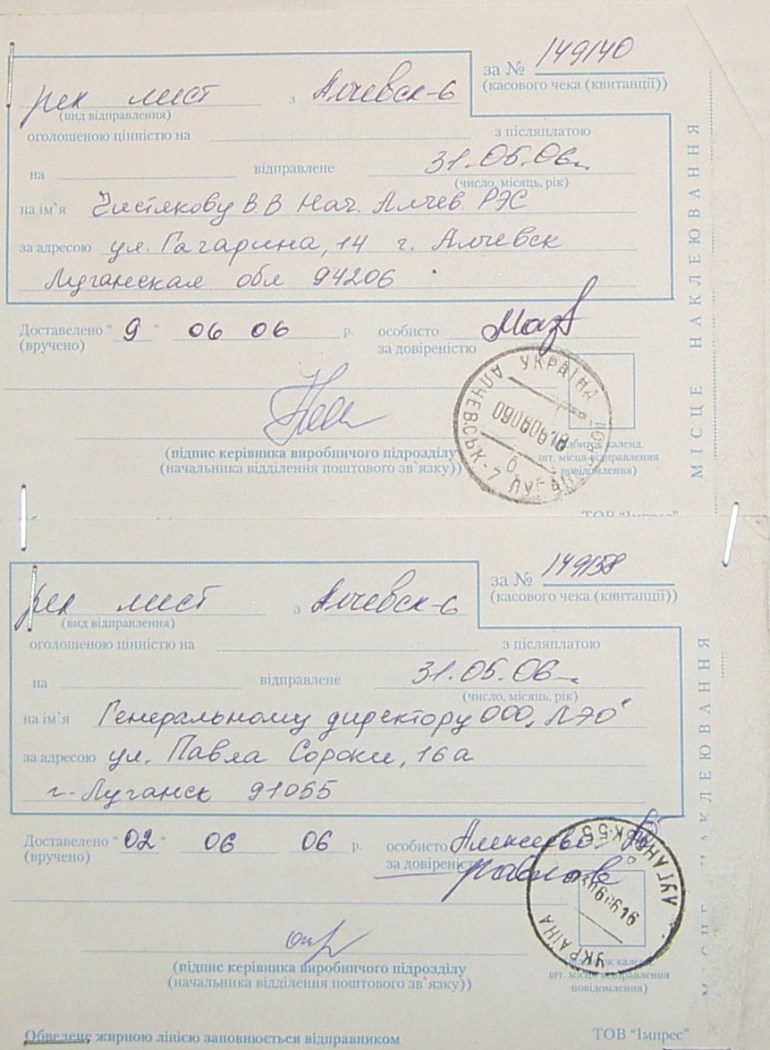 за № 149140
(касового чека (квитанції))
рек лист з Алчевск-6
(вид відправлення)
оголошеною цінністю на з післяплатою
на відправлене 31.05.06г.
(число, місяць, рік)
на ім'я Чистякову В.В Нач. Алчев. РЭС
за адресою ул. Гагарина, 14 г. Алчевск
Луганская обл 94206
Доставлено "9" 06 06 р. особисто
(вручено) за довіреністю
УКРАЇНА
АЛЧЕВСЬК-7
(підпис керівника виробничого підрозділу
(начальника відділення поштового зв`язку))
шт. місця відправлення
повідомлення)
МІСЦЕ НАКЛЕЮВАННЯ
ТОВ "Імпрес"
за № 149138
(касового чека (квитанції))
рек лист з Алчевск-6
(вид відправлення)
оголошеною цінністю на з післяплатою
на відправлене 31.05.06г.
(число, місяць, рік)
на ім'я Генеральному директору ООО „ЛЭО"
за адресою ул. Павла Сороки, 16а
г. Луганск 91055
Доставлено "02 06 06 р. особисто
(вручено) за довіреністю
УКРАЇНА
(підпис керівника виробничого підрозділу
(начальника відділення поштового зв`язку))
шт. місця відправлення
повідомлення)
МІСЦЕ НАКЛЕЮВАННЯ
Обведене жирною лінією заповнюється відправником
ТОВ "Імпрес"